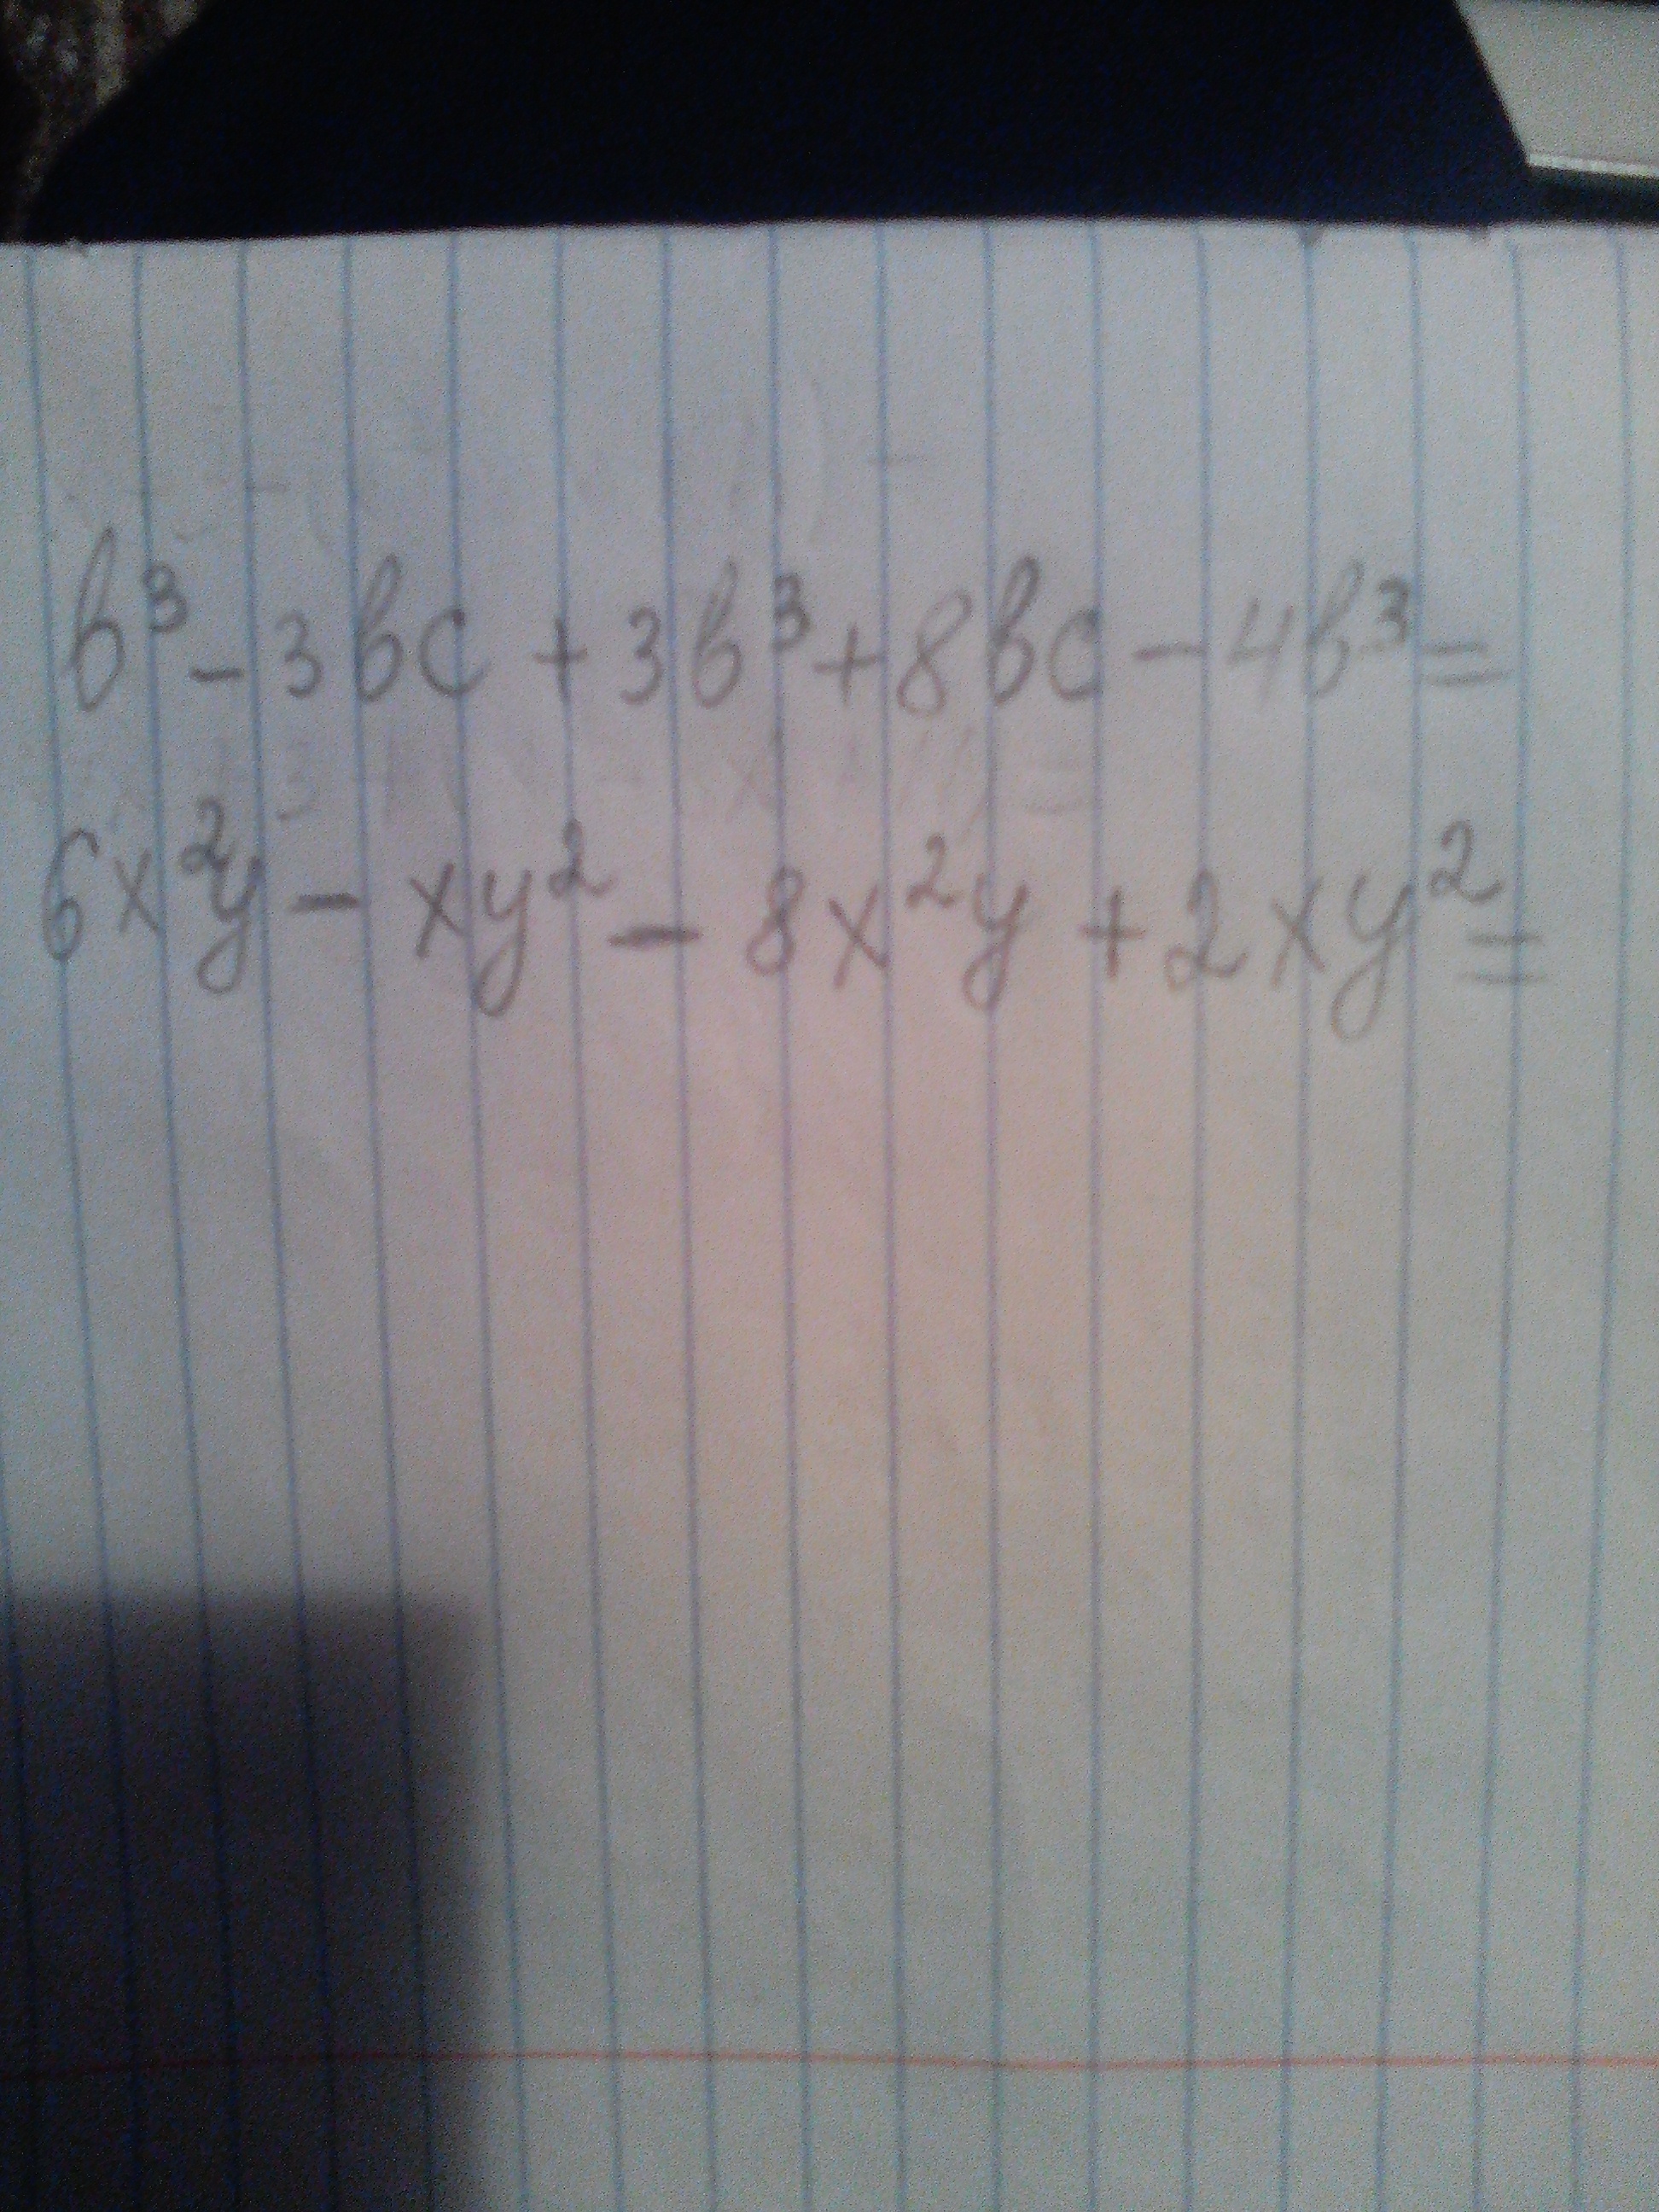 b³ - 3bc + 3b³ + 8bc - 4b³ =
6x²y - xy² - 8x²y + 2xy² =